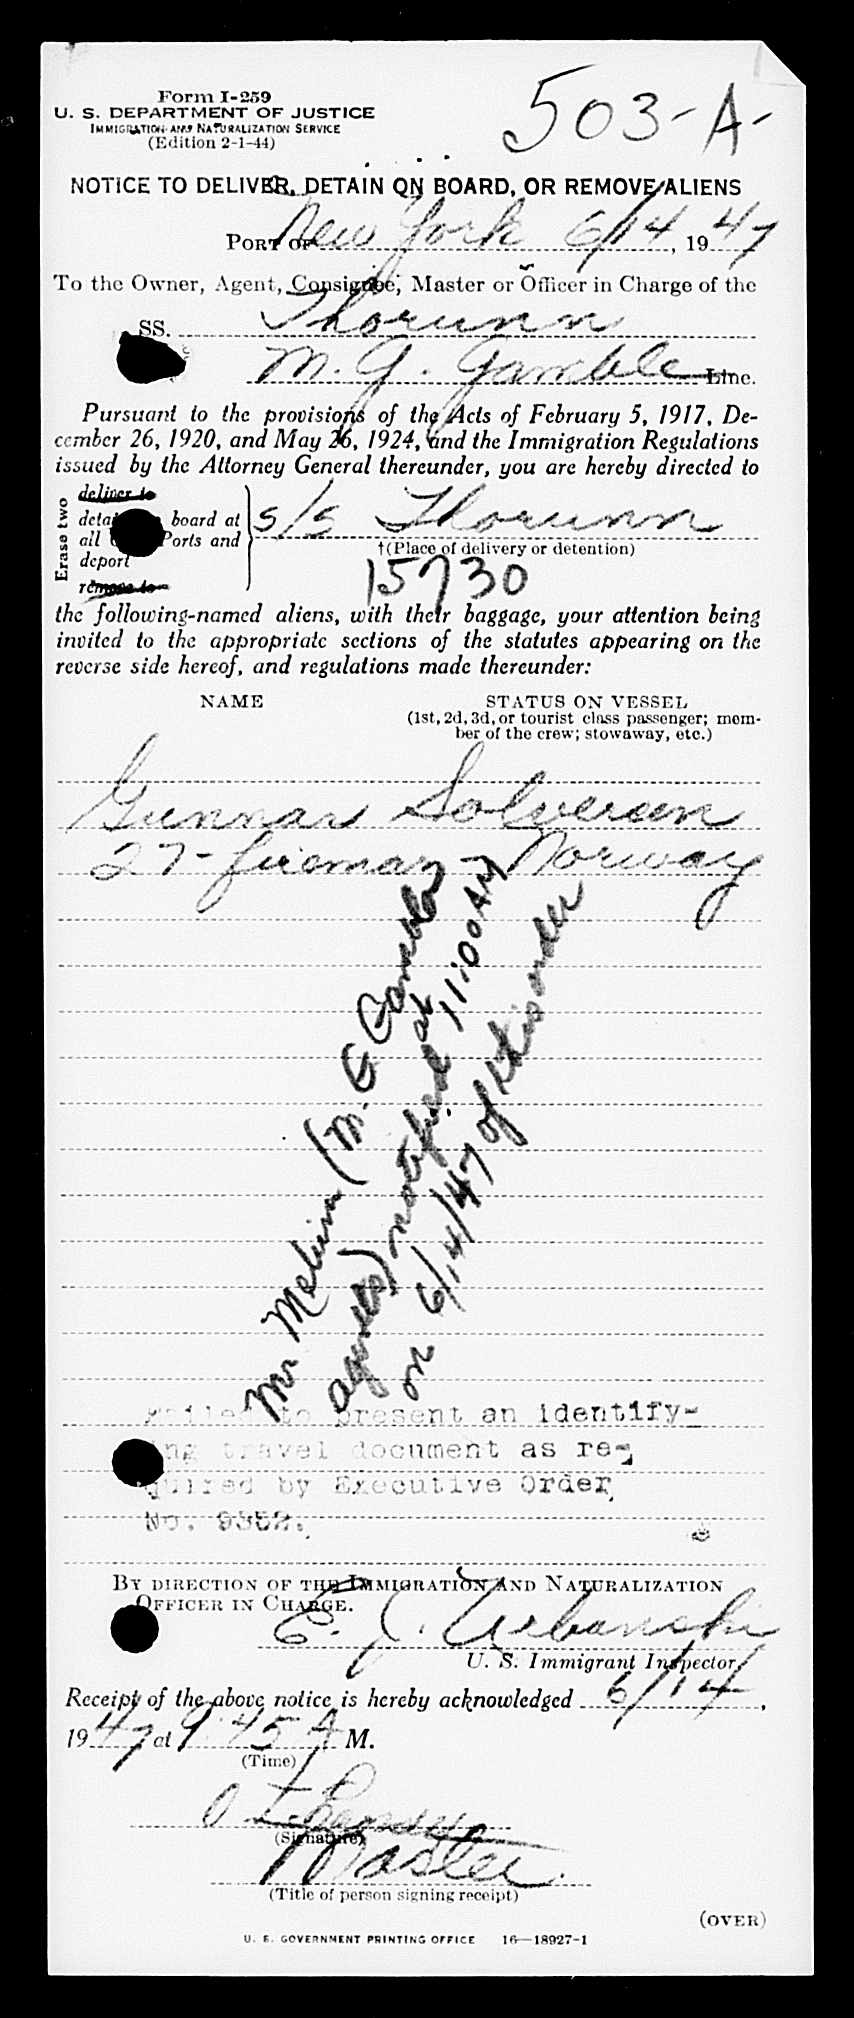 Form I-259
U. S. DEPARTMENT OF JUSTICE
IMMIGRATION AND NATURALIZATION SERVICE
(Edition 2-1-44)
503-A-
NOTICE TO DELIVER, DETAIN ON BOARD, OR REMOVE ALIENS
PORT OF New York 6/14, 1947
To the Owner, Agent, Consignee, Master or Officer in Charge of the
SS. Thorunn
M. G. Gamble Line.
Pursuant to the provisions of the Acts of February 5, 1917, De-
cember 26, 1920, and May 26, 1924, and the Immigration Regulations
issued by the Attorney General thereunder, you are hereby directed to
Erase two
deliver to
detain board at
all Ports and
deport
remove to
s/s Thorunn
†(Place of delivery or detention)
15730
the following-named aliens, with their baggage, your attention being
invited to the appropriate sections of the statutes appearing on the
reverse side hereof, and regulations made thereunder:
NAME
STATUS ON VESSEL
(1st, 2d, 3d, or tourist class passenger; mem-
ber of the crew; stowaway, etc.)
Gunnar Solversen
27 - fireman Norway
Mr (M. G Gamble
agents) notified at 11:00 AM
on 6/14/47 of this order
Failed to present an identify-
ing travel document as re-
quired by Executive Order
No. 9352.
BY DIRECTION OF THE IMMIGRATION AND NATURALIZATION
OFFICER IN CHARGE.
E. J. Urbanski
U. S. Immigrant Inspector.
Receipt of the above notice is hereby acknowledged 6/14,
1947 at 9:45 A M.
(Time)
(Signature)
Master.
(Title of person signing receipt)
(OVER)
U. S. GOVERNMENT PRINTING OFFICE 16—18927-1